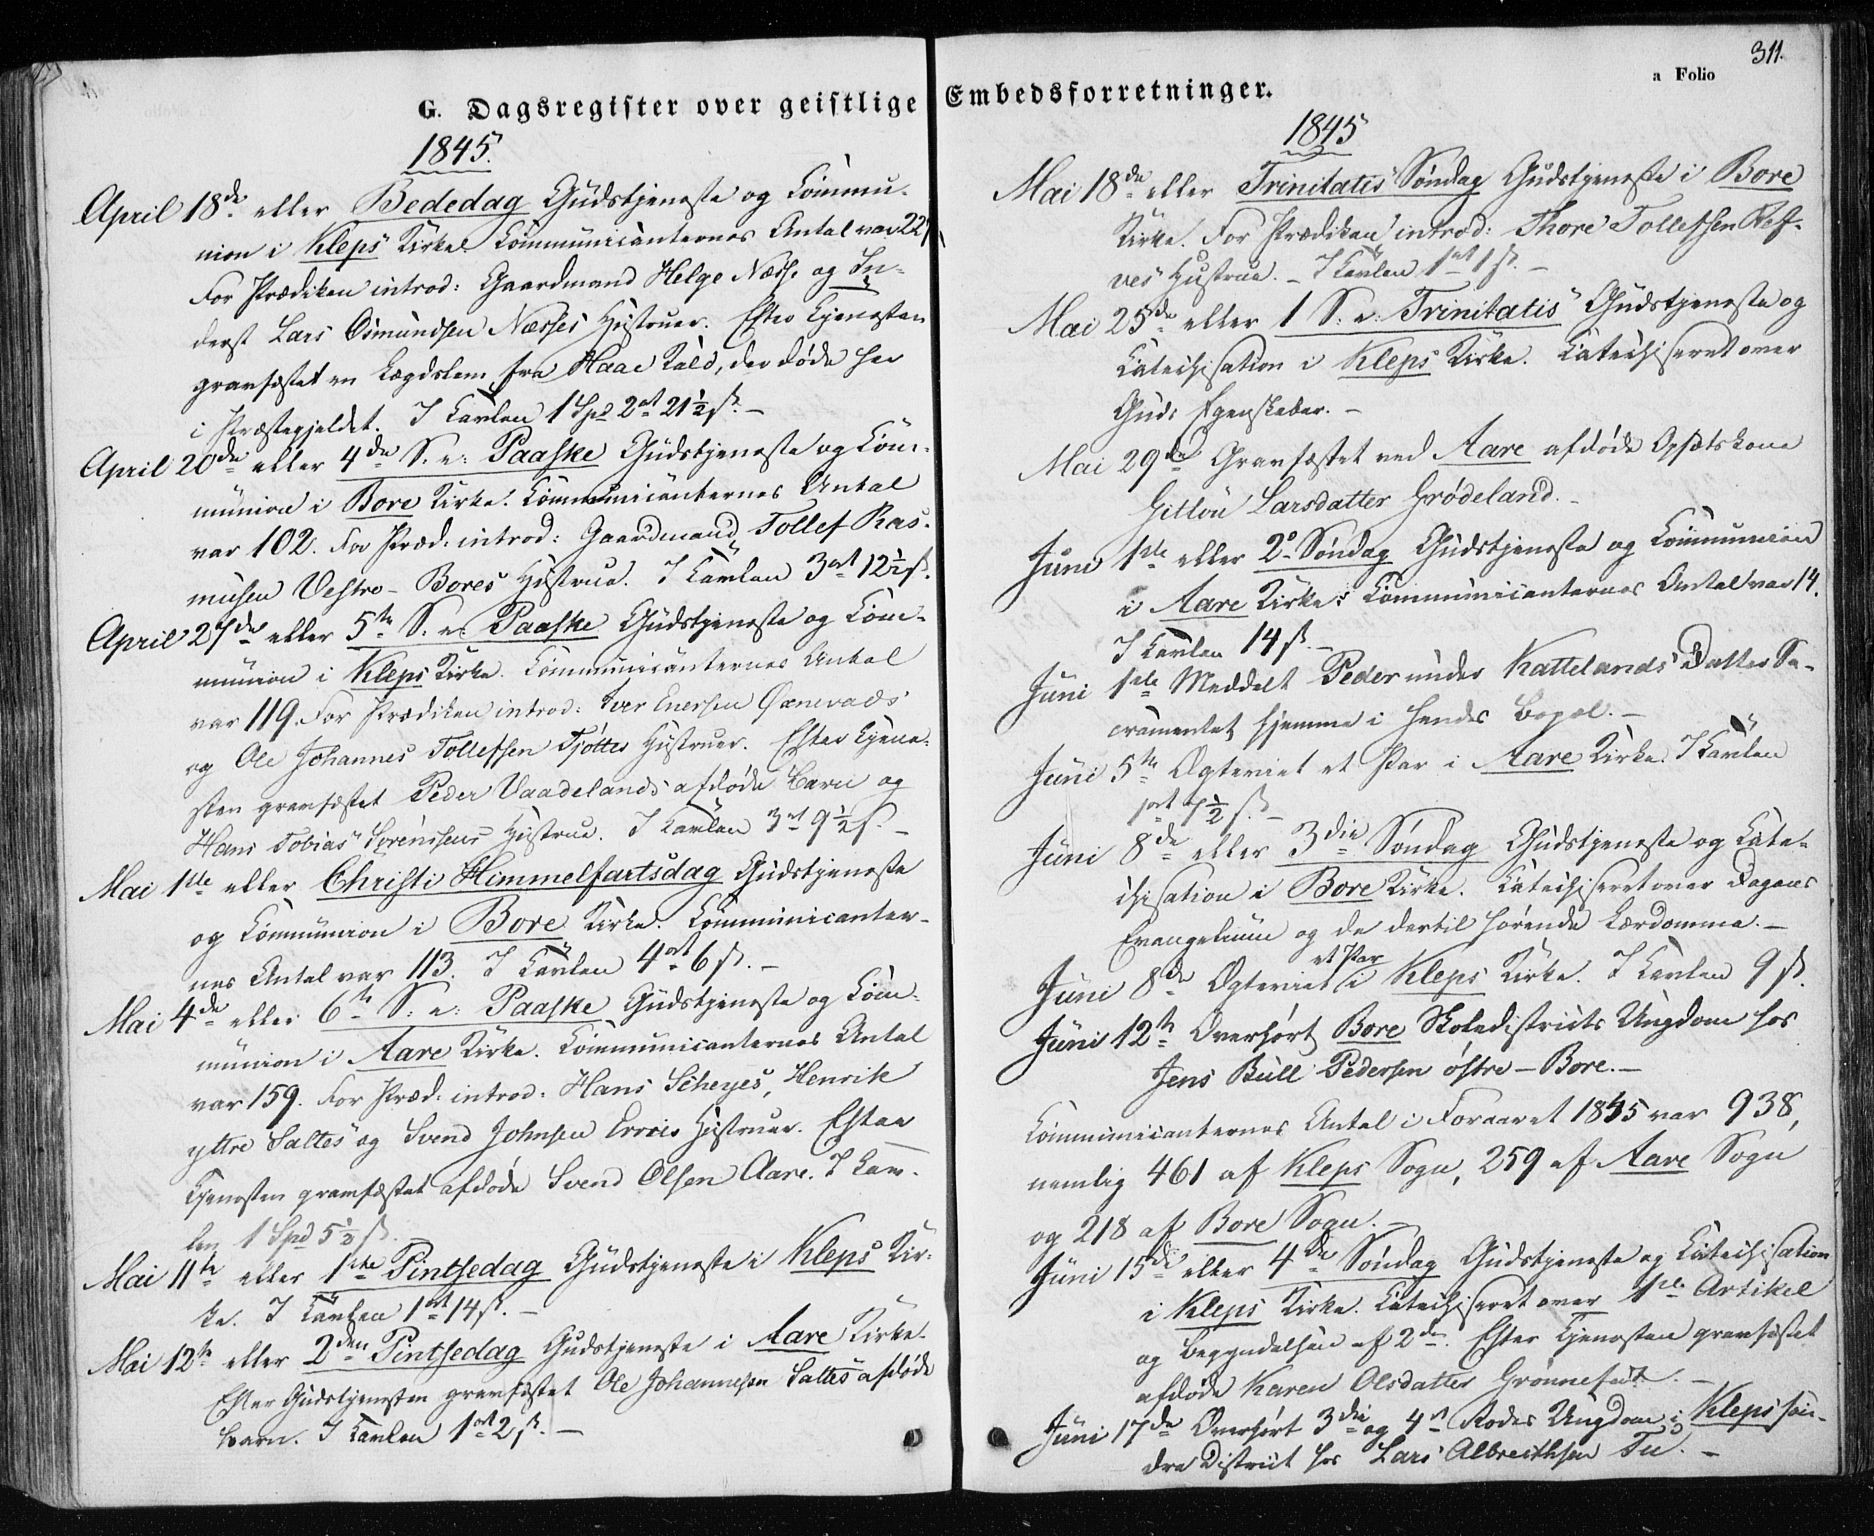 G. Dagsregister over geistlige
1845.
April 18de eller Bededag Gudstjeneste og Commu-
nion i Kleps Kirke. Communicanternes Antal var 221
For Prædiken introd: Gaardmand Helge Næsse og In-
derst Lars Osmundsen Næsses Hustruer. Efter Tjenesten
gravfæstet en Lægdslem fra Haae Kald, der døde her
i Præstegjeldet. I Tavlen 1 Spd 2 ort 21½ ß. –
April 20de eller 4de S. e: Paaske Gudstjeneste og Com-
munion i Bore Kirke. Communicanternes Antal
var 102. For Præd: introd: Gaardmand Tollef Ras-
musen Vestre-Bores Hustrue. I Tavlen 3 ort 12½ ß.
April 27de eller 5te S. e: Paaske Gudstjeneste og Com-
munion i Kleps Kirke. Communicanternes Antal
var 119. For Prædiken introd: Iver Enersen Øxnevads
og Ole Johannes Tollefsen Tjøttes Hustruer. Efter Tjene-
sten gravfæstet Peder Vaadelands afdøde Barn og
Hans Tobias Sørensens Hustrue. I Tavlen 3 ort 9½ ß. –
Mai 1ste eller Christi Himmelfartsdag Gudstjeneste
og Communion i Bore Kirke. Communicanter-
nes Antal var 113. I Tavlen 4 ort 6 ß. –
Mai 4de eller 6te S: e: Paaske Gudstjeneste og Com-
munion i Aare Kirke. Communicanternes Antal
var 159. For Præd: introd: Hans Scheyes, Henrik
yttre Saltes og Svend Johnsen Hustruer. Efter
Tjenesten gravfæstet afdøde Svend Olsen Aare. I Tav-
len 1 Spd 5½ ß.
Mai 11te eller 1ste Pintsedag Gudstjeneste i Kleps Kir-
ke. I Tavlen 1 ort 14 ß. –
Mai 12te eller 2den Pintsedag Gudstjeneste i Aare Kirke.
Efter Gudstjenesten gravfæstet Ole Johannesen Saltes afdøde
Barn. I Tavlen 1 ort 2 ß. –
Embedsforretninger.
a Folio 311.
1845
Mai 18de eller Trinitatis Søndag Gudstjeneste i Bore
Kirke. For Prædiken introd: Thore Tollefsen Ref-
ves Hustrue. – I Tavlen 1 ort 1 ß. –
Mai 25de eller 1 S: e: Trinitatis Gudstjeneste og
Catechisation i Kleps Kirke. Catechiseret over
Guds Egenskaber. –
Mai 29de Gravfæstet ved Aare afdøde Opsætskone
Larsdatter Grødeland. –
Juni 1ste eller 2d Søndag Gudstjeneste og Communion
i Aare Kirke: Communicanternes Antal var 14.
I Tavlen 14 ß. –
Juni 1ste Meddelt Peder under Kattelands Datter Sa-
cramentet hjemme i hendes Bopæl. –
Juni 5te Ægteviet et Par i Aare Kirke. I Tavlen
1 ort 7½ ß. –
Juni 8de eller 3die Søndag Gudstjeneste og Cate-
chisation i Bore Kirke. Catechiseret over Dagens
Evangelium og de dertil hørende Lærdomme. –
Juni 8de Ægteviet et Par i Kleps Kirke. I Tavlen 9 ß.
Juni 12te Overhørt Bore Skoledistricts Ungdom hos
Jens Bull Pedersen østre-Bore. –
Communicanternes Antal i Foraaret 1845 var 938,
nemlig 461 af Kleps Sogn, 259 af Aare Sogn
og 218 af Bore Sogn. –
Juni 15de eller 4de Søndag Gudstjeneste og Catechisation
i Kleps Kirke. Catechiseret over 1ste Artikel
og Begyndelsen af 2den. Efter Tjenesten gravfæstet
afdøde Karen Olsdatter –
Juni 17de Overhørt 3die og 4de Rodes Ungdom i Kleps søn-
dre District hos Lars Albrecthsen Tu. –